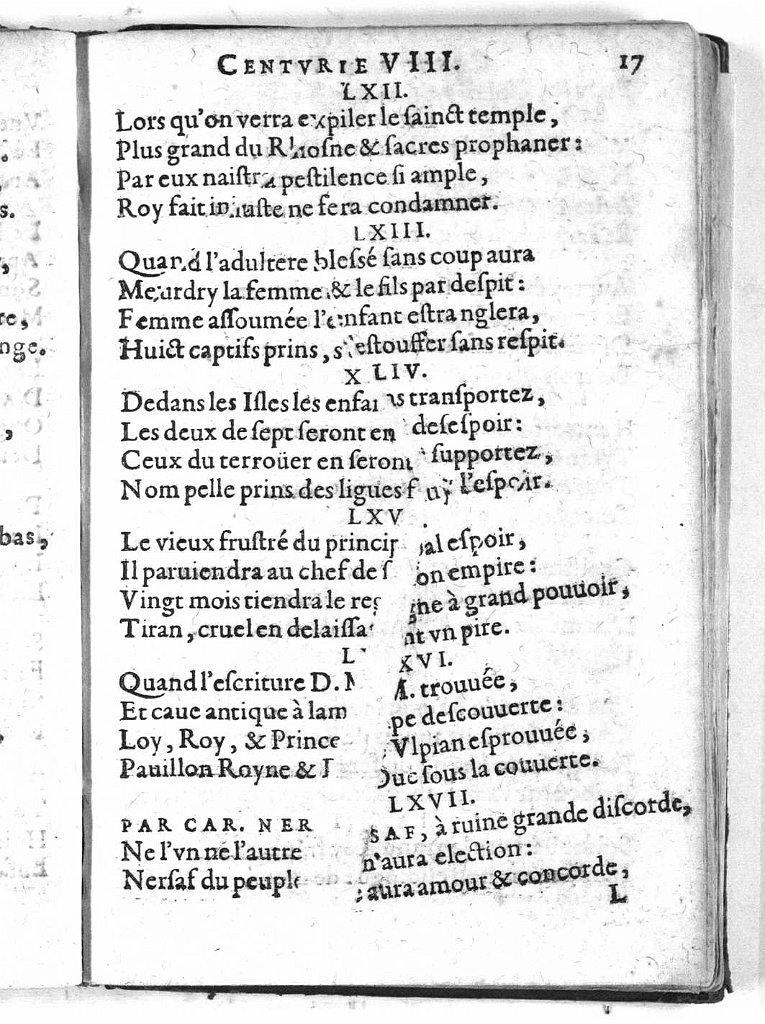 CENTVRIE VIII. 17
LXII.
Lors qu'on verra expiler le ſainct temple,
Plus grand du Rhoſne & ſacres prophaner:
Par eux naiſtra peſtilence ſi ample,
Roy fait iniuſte ne fera condamner.
LXIII.
Quand l'adultere bleſſé ſans coup aura
Meurdry la femme & le fils par deſpit:
Femme aſſoumée l'enfant eſtranglera,
Huict captifs prins, s'eſtouffer ſans reſpit.
XLIV.
Dedans les Iſles les enfans tranſportez,
Les deux de ſept ſeront en deſeſpoir:
Ceux du terroüer en ſeront ſupportez,
Nom pelle prins des ligues fuy l'eſpoir.
LXV.
Le vieux fruſtré du principal eſpoir,
Il paruiendra au chef de ſon empire:
Vingt mois tiendra le regne à grand pouuoir,
Tiran, cruel en delaiſſant vn pire.
LXVI.
Quand l'eſcriture D.M. trouuée,
Et caue antique à lampe deſcouuerte:
Loy, Roy, & Prince Vlpian eſprouuée,
Pauillon Royne & Duc ſous la couuerte.
LXVII.
PAR CAR. NERSAF, à ruine grande diſcorde,
Ne l'vn ne l'autre n'aura election:
Nerſaf du peuple aura amour & concorde,
L